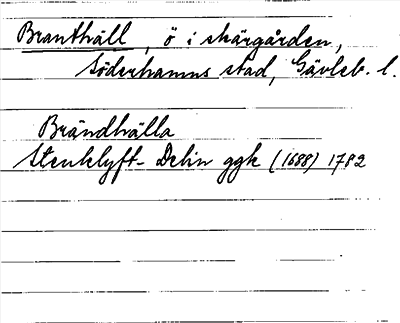 Branthäll, ö i skärgården,
Söderhamns stad, Gävleb. l.
Brändhälla
Stenklyft- Delin ggk (1688) 1782